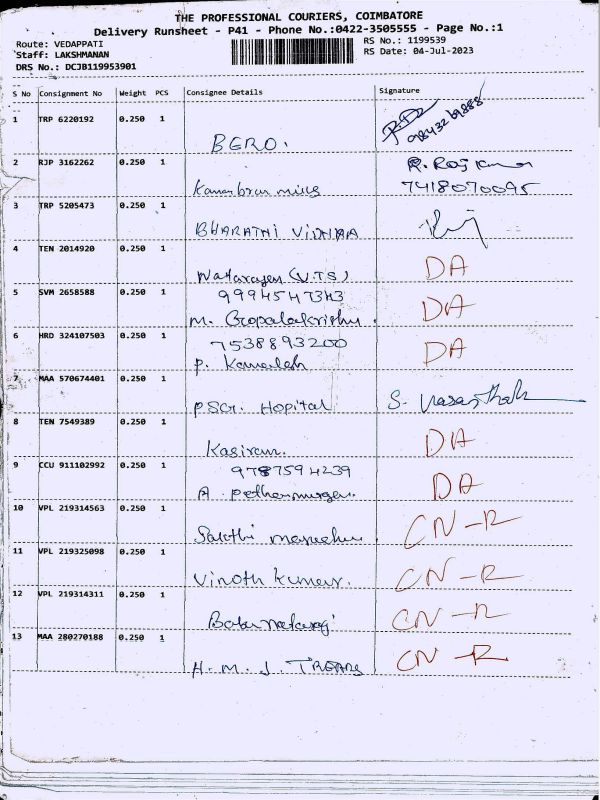 THE PROFESSIONAL COURIERS, COIMBATORE
Delivery Runsheet - P41 - Phone No.:0422-3505555 - Page No.:1
Route: VEDAPPATI
Staff: LAKSHMANAN
DRS No.: DCJB119953901
RS No.: 1199539
RS Date: 04-Jul-2023
S No Consignment No Weight PCS Consignee Details Signature
1 TRP 6220192 0.250 1
9843269888
BERO.
2 RJP 3162262 0.250 1 R. Raj Kumar
Kamanbran mills 7418070095
3 TRP 5205473 0.250 1
BHARATHI VIDHYAA
4 TEN 2014920 0.250 1 DA
Natarajan (V.T.S)
5 SVM 2658588 0.250 1 9994547343 DA
M. Gopalakrishn.
6 HRD 324107503 0.250 1 7538893200 DA
P. Kamalesh
7 MAA 570674401 0.250 1
PSG. Hopital S. Vasantha
8 TEN 7549389 0.250 1 DA
Kasiram.
9 CCU 911102992 0.250 1 9787594239 DA
A
10 VPL 219314563 0.250 1 CN-R
Sakthi
11 VPL 219325098 0.250 1 CN-R
Vinoth Kumar.
12 VPL 219314311 0.250 1 CN-R
Babu Nataraj
13 MAA 280270188 0.250 1 CN-R
H. M. J.